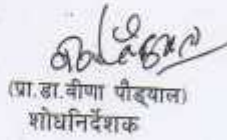 (प्रा.डा.वीणा पौड्याल)
शोधनिर्देशक